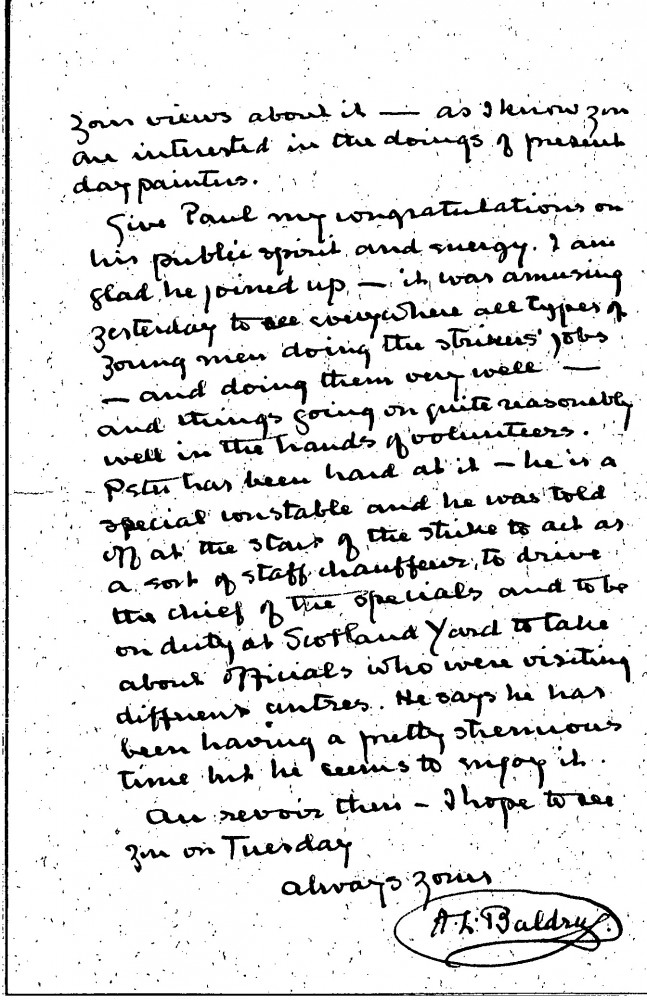 your views about it — as I know you
are interested in the doings of present
day painters.
Give Paul my congratulations on
his public spirit and energy. I am
glad he joined up — it was amusing
yesterday to see everywhere all types of
young men doing the strikers' jobs
— and doing them very well —
and things going on quite reasonably
well in the hands of volunteers.
Peter has been hard at it — he is a
special constable and he was told
off at the start of the strike to act as
a sort of staff chauffeur, to drive
the chief of the specials and to be
on duty at Scotland Yard to take
about officials who were visiting
different centres. He says he has
been having a pretty strenuous
time but he seems to enjoy it.
Au revoir then — I hope to see
you on Tuesday
always yours
A. L. Baldry.